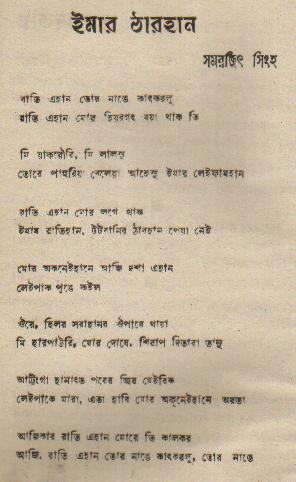 ইমার ঠারহান
সমরজিৎ সিংহ
রাতি এহান তোর নাঙে কাৎকরলু
রাতি এহান মোর হিয়রগৎ বয়া থাক তি
মি য়াকরৌরি, মি লালসু
তোরে পাহুরিয়া বেলেয়া আহেসু ইমার লেইফামহান
রাতি এহান মোর লগে থাক
ইমাম রাতিহান, উটবানির ঠারহান পেয়া নেই
মোর অকনেইহানে আজি দশা এহান
লেইপাক পুঙে কইল
ঔরে, হিলর সরাহানর ঔপারে থায়া
মি হারপাউরি, মোর দোষে, শিরাপ দিতারা তানু
আট্টিংগা হানাৎত পবের স্থির মেইরিক
লেইপাকে মারা, এতা হাবি মোর অক্‌নেইহানে অরতা
আজিকার রাতি এহান মোরে তি কালকর
আজি, রাতি এহান তোর নাঙে কাৎকরলু, তোর নাঙে